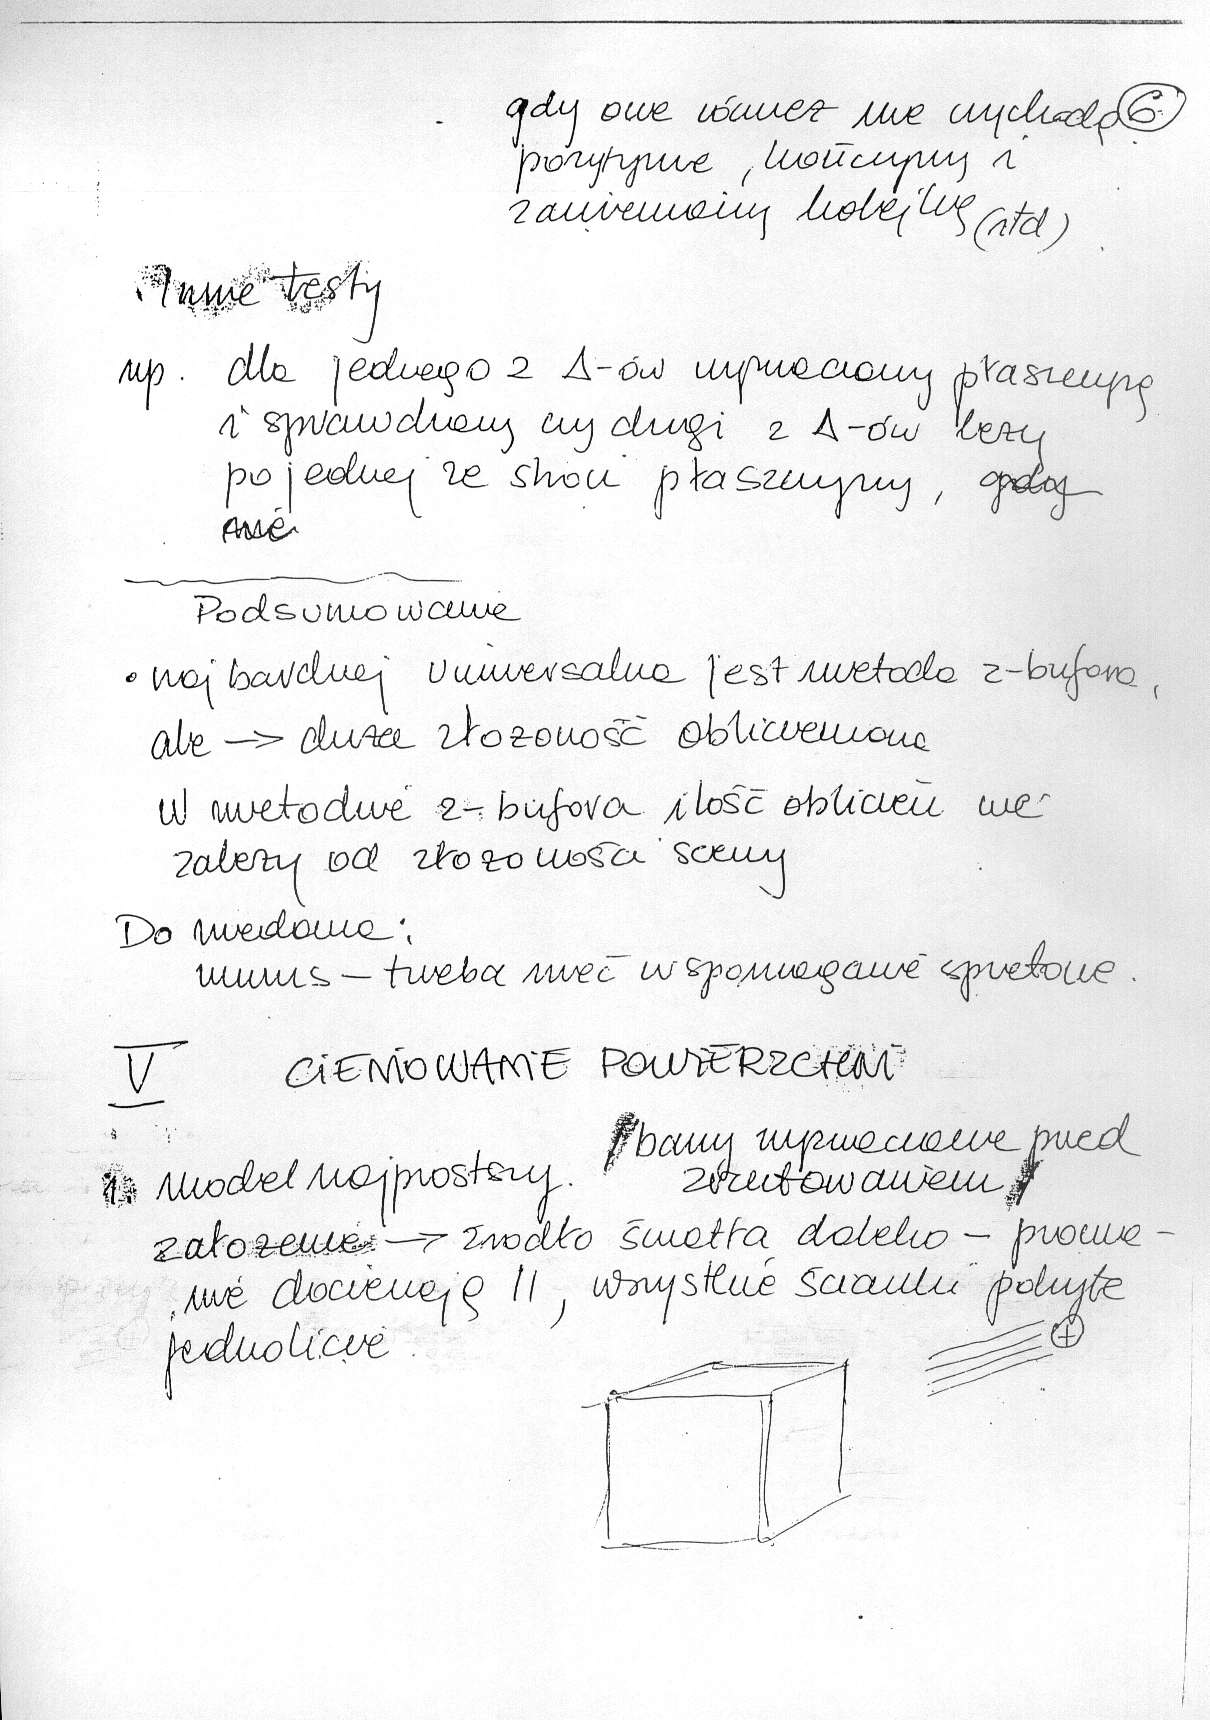 gdy one również nie wychodzą 6.
pozytywnie, kończymy i
zamieniamy kolejkę (itd)
Inne testy
np. dla jednego z Δ-ów wyznaczamy płaszczyznę
i sprawdzamy czy drugi z Δ-ów leży
po jednej ze stron płaszczyzny, gdy
nie
Podsumowanie
• najbardziej uniwersalna jest metoda z-bufora,
ale → duża złożoność obliczeniowa
W metodzie z-bufora ilość obliczeń nie
zależy od złożoności sceny
Do niedawna:
minus – trzeba mieć wspomaganie sprzętowe.
V CIENIOWANIE POWIERZCHNI
/barwy wyznaczane przed
1. model najprostszy. zrzutowaniem/
założenie → źródło światła daleko – promie-
nie docierają ||, wszystkie ścianki pokryte
jednolicie.